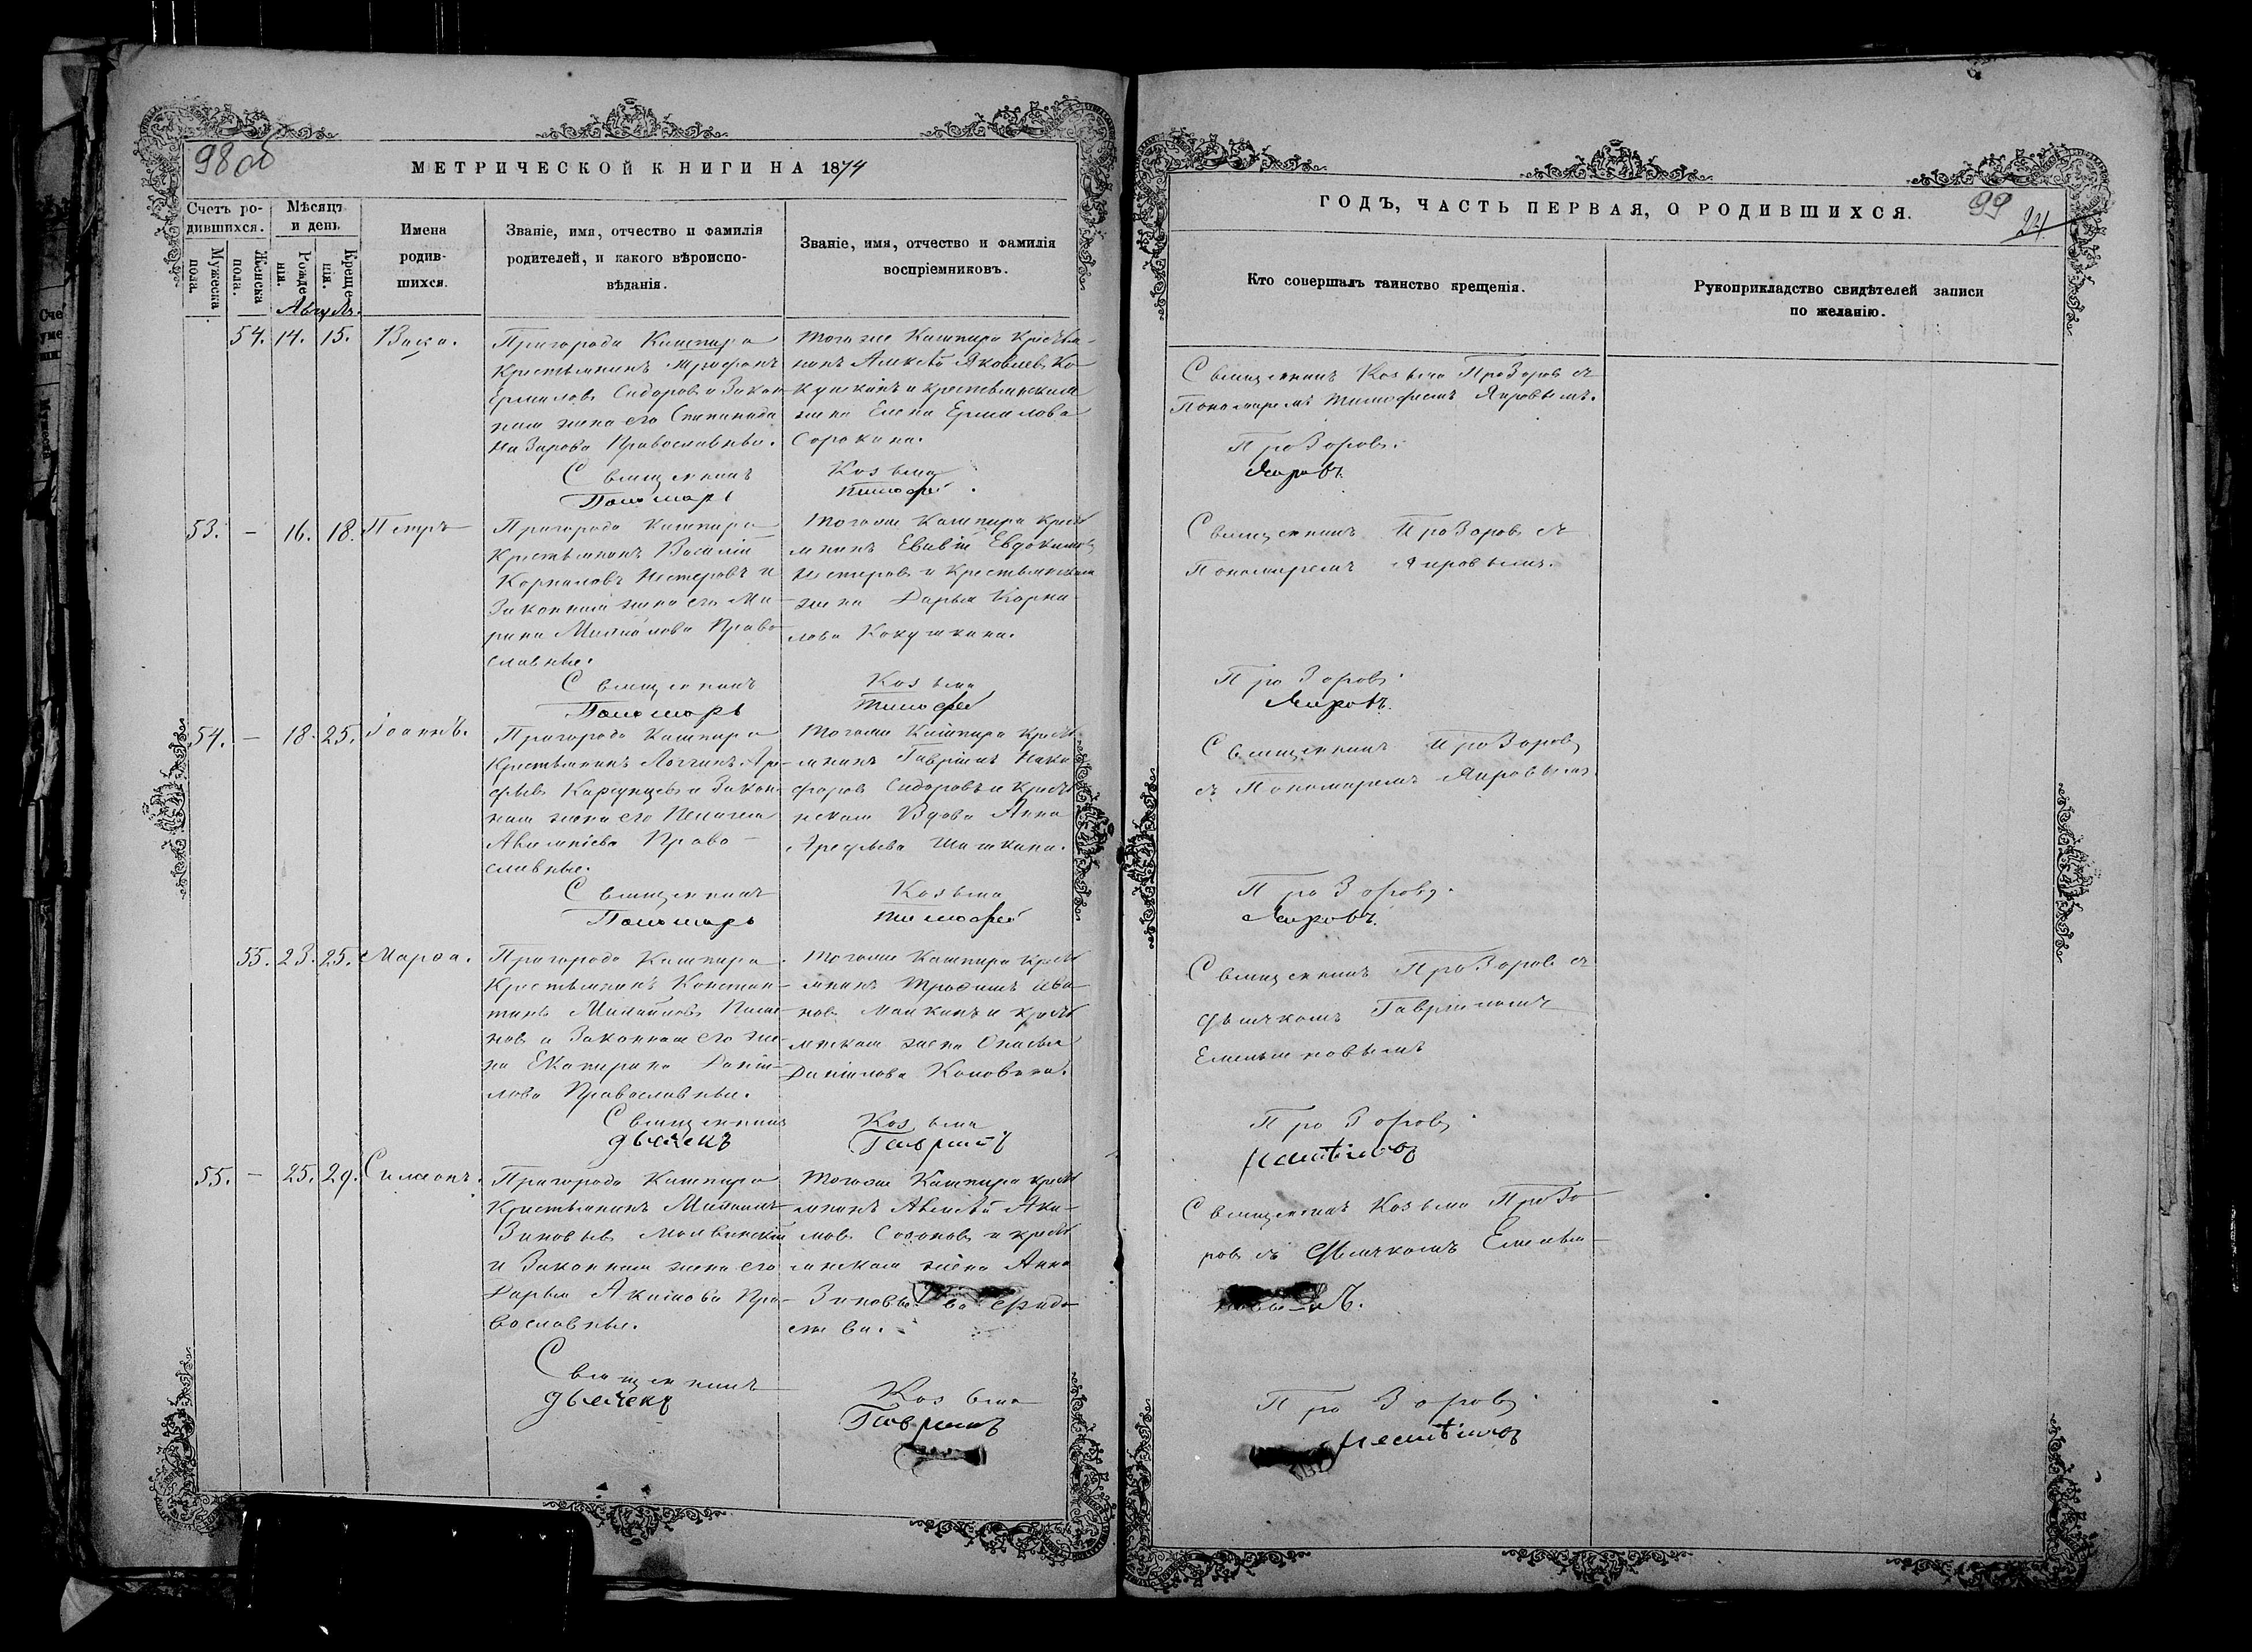 98 об
МЕТРИЧЕСКОЙ КНИГИ НА 1874
Счетъ ро-
дившихся.
Мужеска
пола.
Женска
пола.
Мѣсяцъ
и день.
Рожде
нія.
Креще-
нія.
Августъ.
Имена
родив-
шихся.
Званіе, имя, отчество и фамилія
родителей, и какого вѣроиспо-
вѣданія.
Званіе, имя, отчество и фамилія
воспріемниковъ.
54. 14. 15.
Васса.
Пригорода Кашпира
Крестьянинъ Трофимъ
Ермиловъ Сидоровъ и Закон
ная жена его Степанида
Назарова Православные.
Тогоже Кашпира Крестья-
нинъ Алексѣй Яковлевъ Ко-
кушкинъ и крестьянская
жена Елена Ермилова
Сорокина.
Священникъ Козьма
Пономарь Тимофей
53. - 16. 18.
Петръ
Пригорода Кашпира
Крестьянинъ Василій
Корниловъ Нестеровъ и
Законная жена его Ма-
рина Михайлова Право-
славные.
Тогоже Кашпира Кресть
янинъ Евдокимовъ
Нестеровъ и Крестьянская
жена Дарья Корни-
лова Кокушкина.
Священникъ Козьма
Пономарь Тимофей
54. - 18. 25.
Іоаннъ.
Пригорода Кашпира
Крестьянинъ Логгинъ Аре-
фьевъ и Закон
ная жена его Пелагея
Право-
славные.
Тогоже Кашпира Кресть
янинъ Гавріилъ Ники
форовъ Сидоровъ и Кресть
нская Вдова Анна
Арефьева Шашкина.
Священникъ Козьма
Пономарь Тимофей
55. 23. 25.
Марѳа.
Пригорода Кашпира
Крестьянинъ Констан-
тинъ Михайловъ
и Законная его же-
на Екатерина Даніи-
лова Православные.
Тогоже Кашпира Кресть
янинъ Трофимъ Ива-
новъ и кресть
янская жена
Даніилова
Священникъ Козьма
дьячекъ Гавріилъ
55. - 25. 29.
Симеонъ.
Пригорода Кашпира
Крестьянинъ Михаилъ
Зиновьевъ
и Законная жена его
Дарья Акимова Пра-
вославные.
Тогоже Кашпира кресть
янинъ Алексѣй Аки-
мовъ и кресть
янская жена Анна
Зиновьева
Священникъ Козьма
дьячекъ Гавріилъ
ГОДЪ, ЧАСТЬ ПЕРВАЯ, О РОДИВШИХСЯ.
99
Кто совершалъ таинство крещенія.
Рукоприкладство свидѣтелей записи
по желанію.
Священникъ Козьма Прозоровъ съ
Пономаремъ Тимофеемъ Яировымъ.
Прозоровъ.
Яировъ.
Священникъ Прозоровъ съ
Пономаремъ Яировымъ.
Прозоровъ.
Яировъ.
Священникъ Прозоровъ
съ Пономаремъ Яировымъ.
Прозоровъ.
Яировъ.
Священникъ Прозоровъ съ
дьячкомъ Гавріиломъ
Емельяновымъ
Прозоровъ.
Священникъ Козьма Прозо-
ровъ съ Дьячкомъ Емелья-
новымъ.
Прозоровъ.